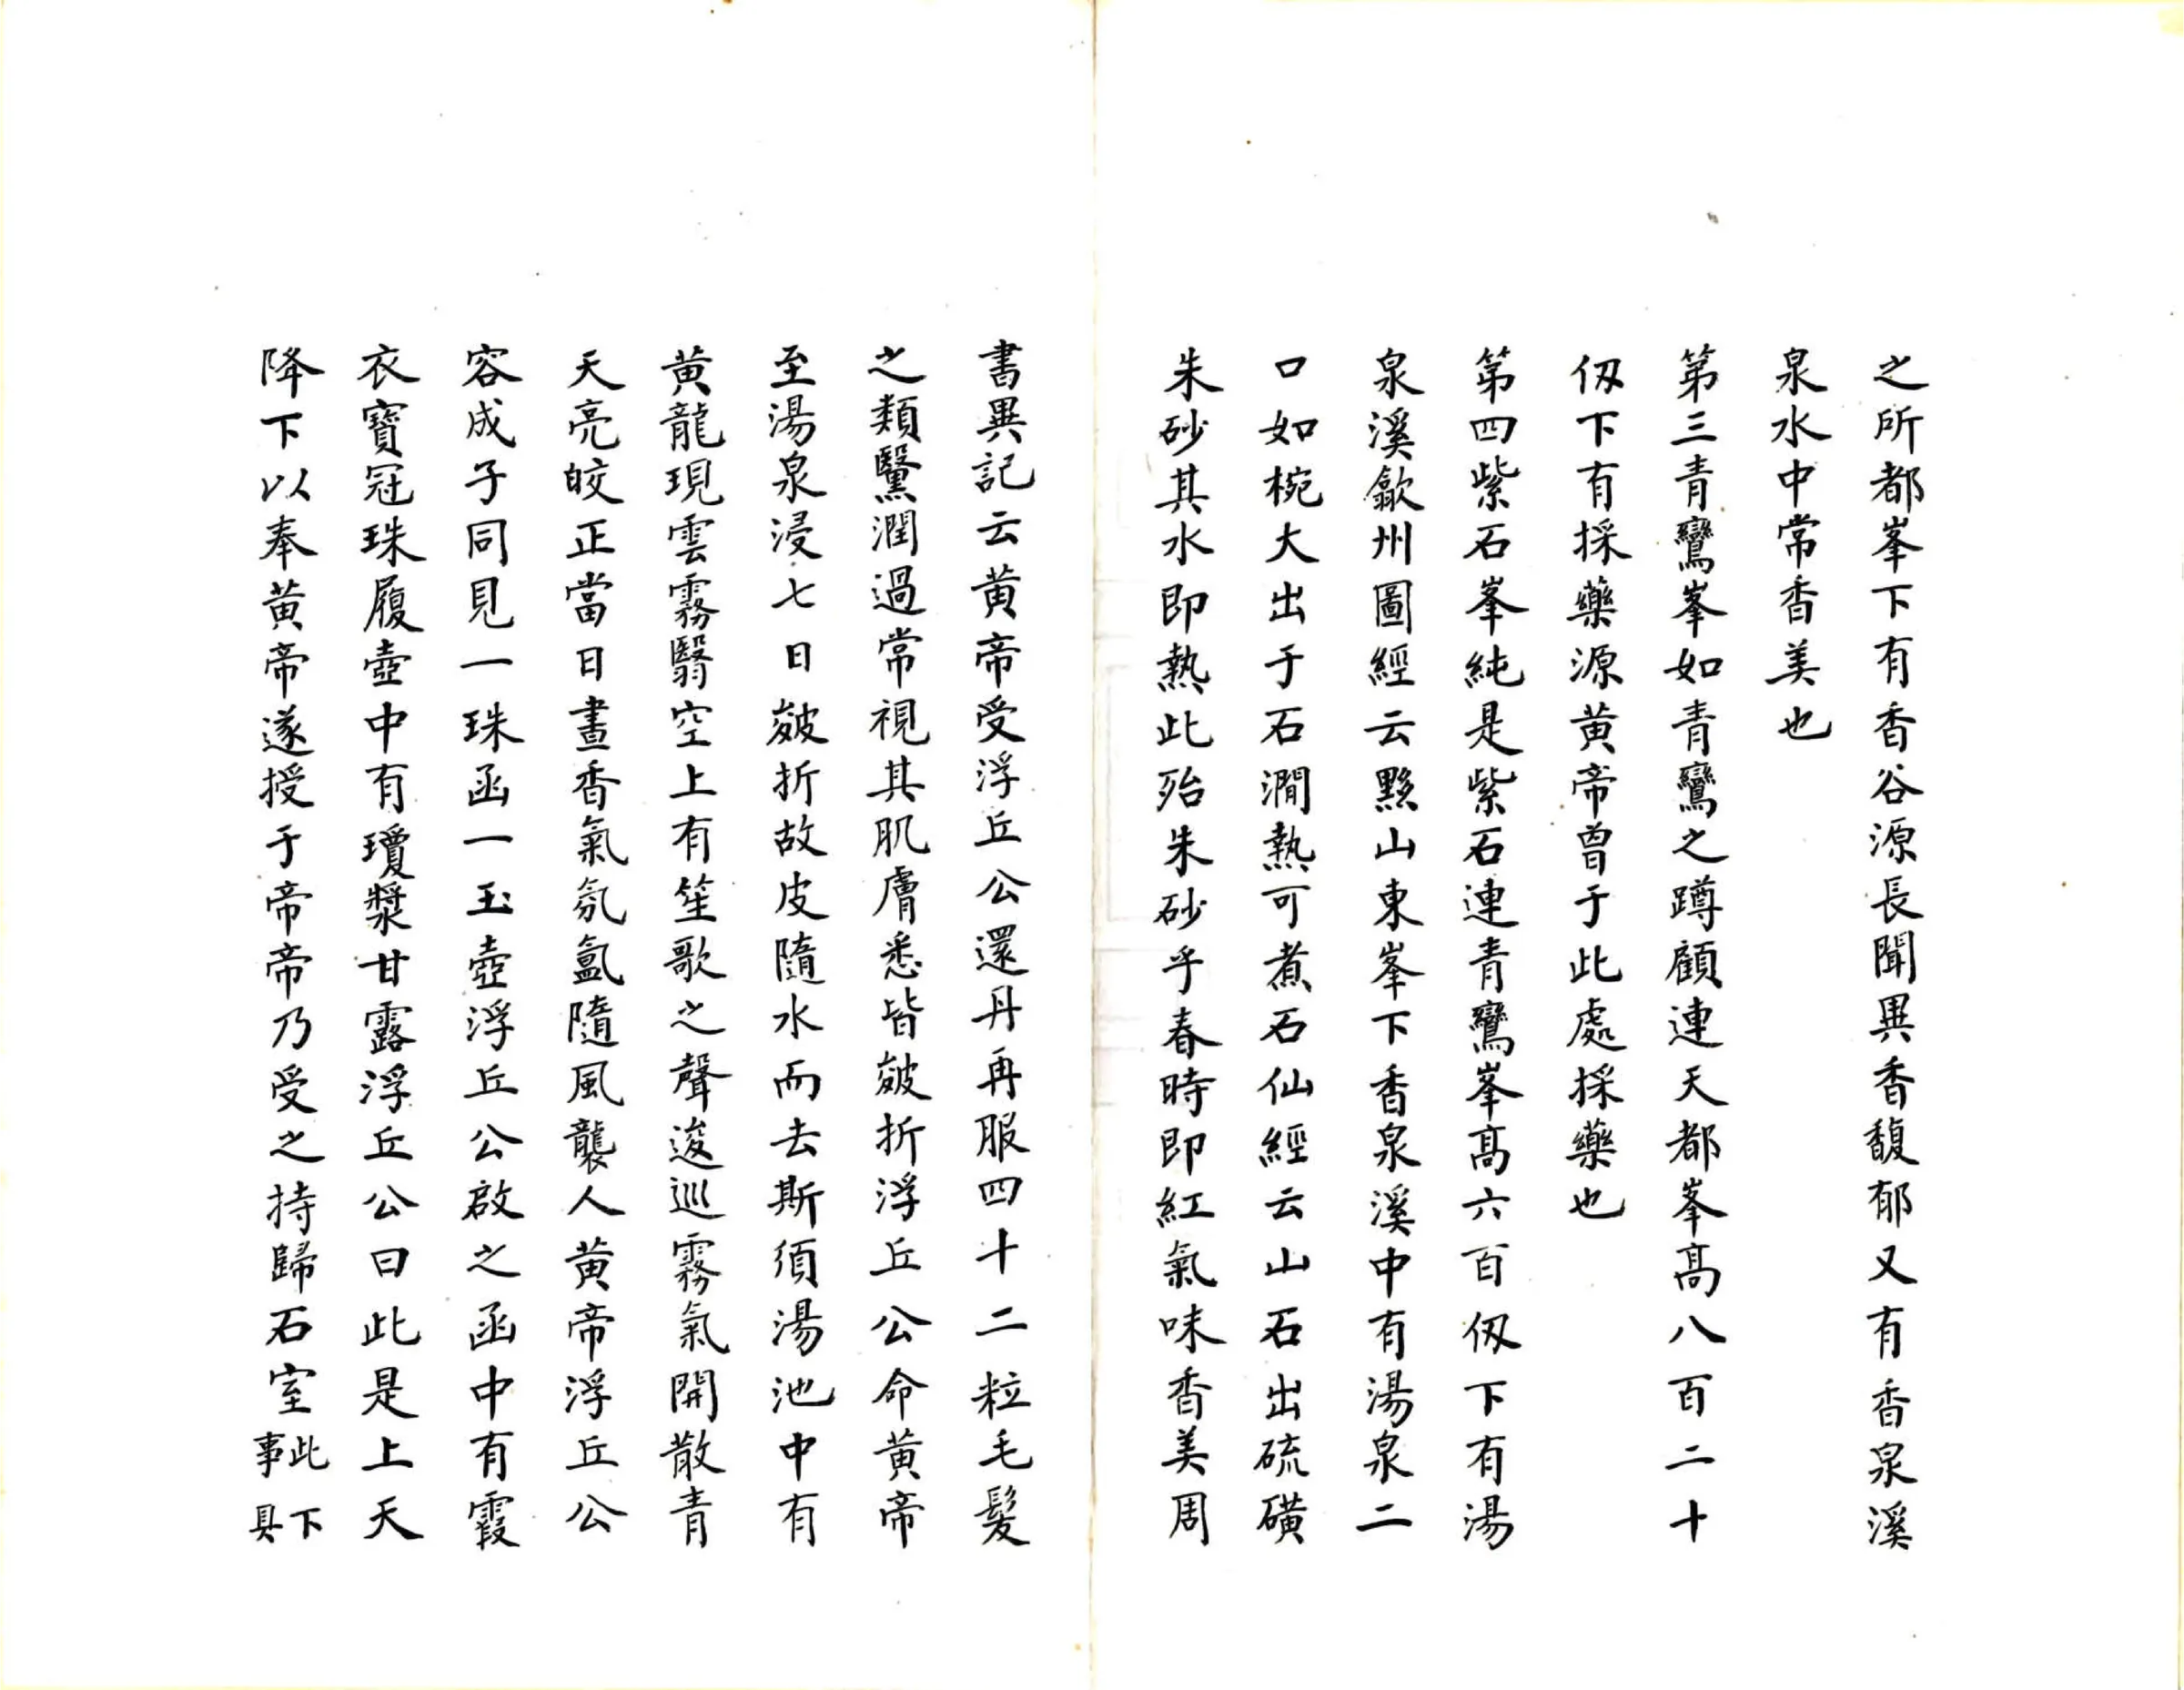 之所都峯下有香谷源長聞異香馥郁又有香泉溪
泉水中常香美也
第三青鸞峯如青鸞之蹲顧連天都峯髙八百二十
仭下有採藥源黄帝曾于此處採藥也
第四紫石峯純是紫石連青鸞峯髙六百仭下有湯
泉溪歙州圖經云黟山東峯下香泉溪中有湯泉二
口如椀大出于石澗熱可煮石仙經云山石出硫磺
朱砂其水即熱此殆朱砂乎春時即紅氣味香美周
書異記云黄帝受浮丘公還丹再服四十二粒毛髮
之類黳潤過常視其肌膚悉皆皴折浮丘公命黄帝
至湯泉浸七日皴折故皮隨水而去斯須湯池中有
黄龍現雲霧翳空上有笙歌之聲逡巡霧氣開散青
天亮皎正當日晝香氣氛氳隨風襲人黄帝浮丘公
容成子同見一珠函一玉壺浮丘公啟之函中有霞
衣寶冠珠履壺中有瓊漿甘露浮丘公曰此是上天
降下以奉黄帝遂授于帝帝乃受之持歸石室此下
事具